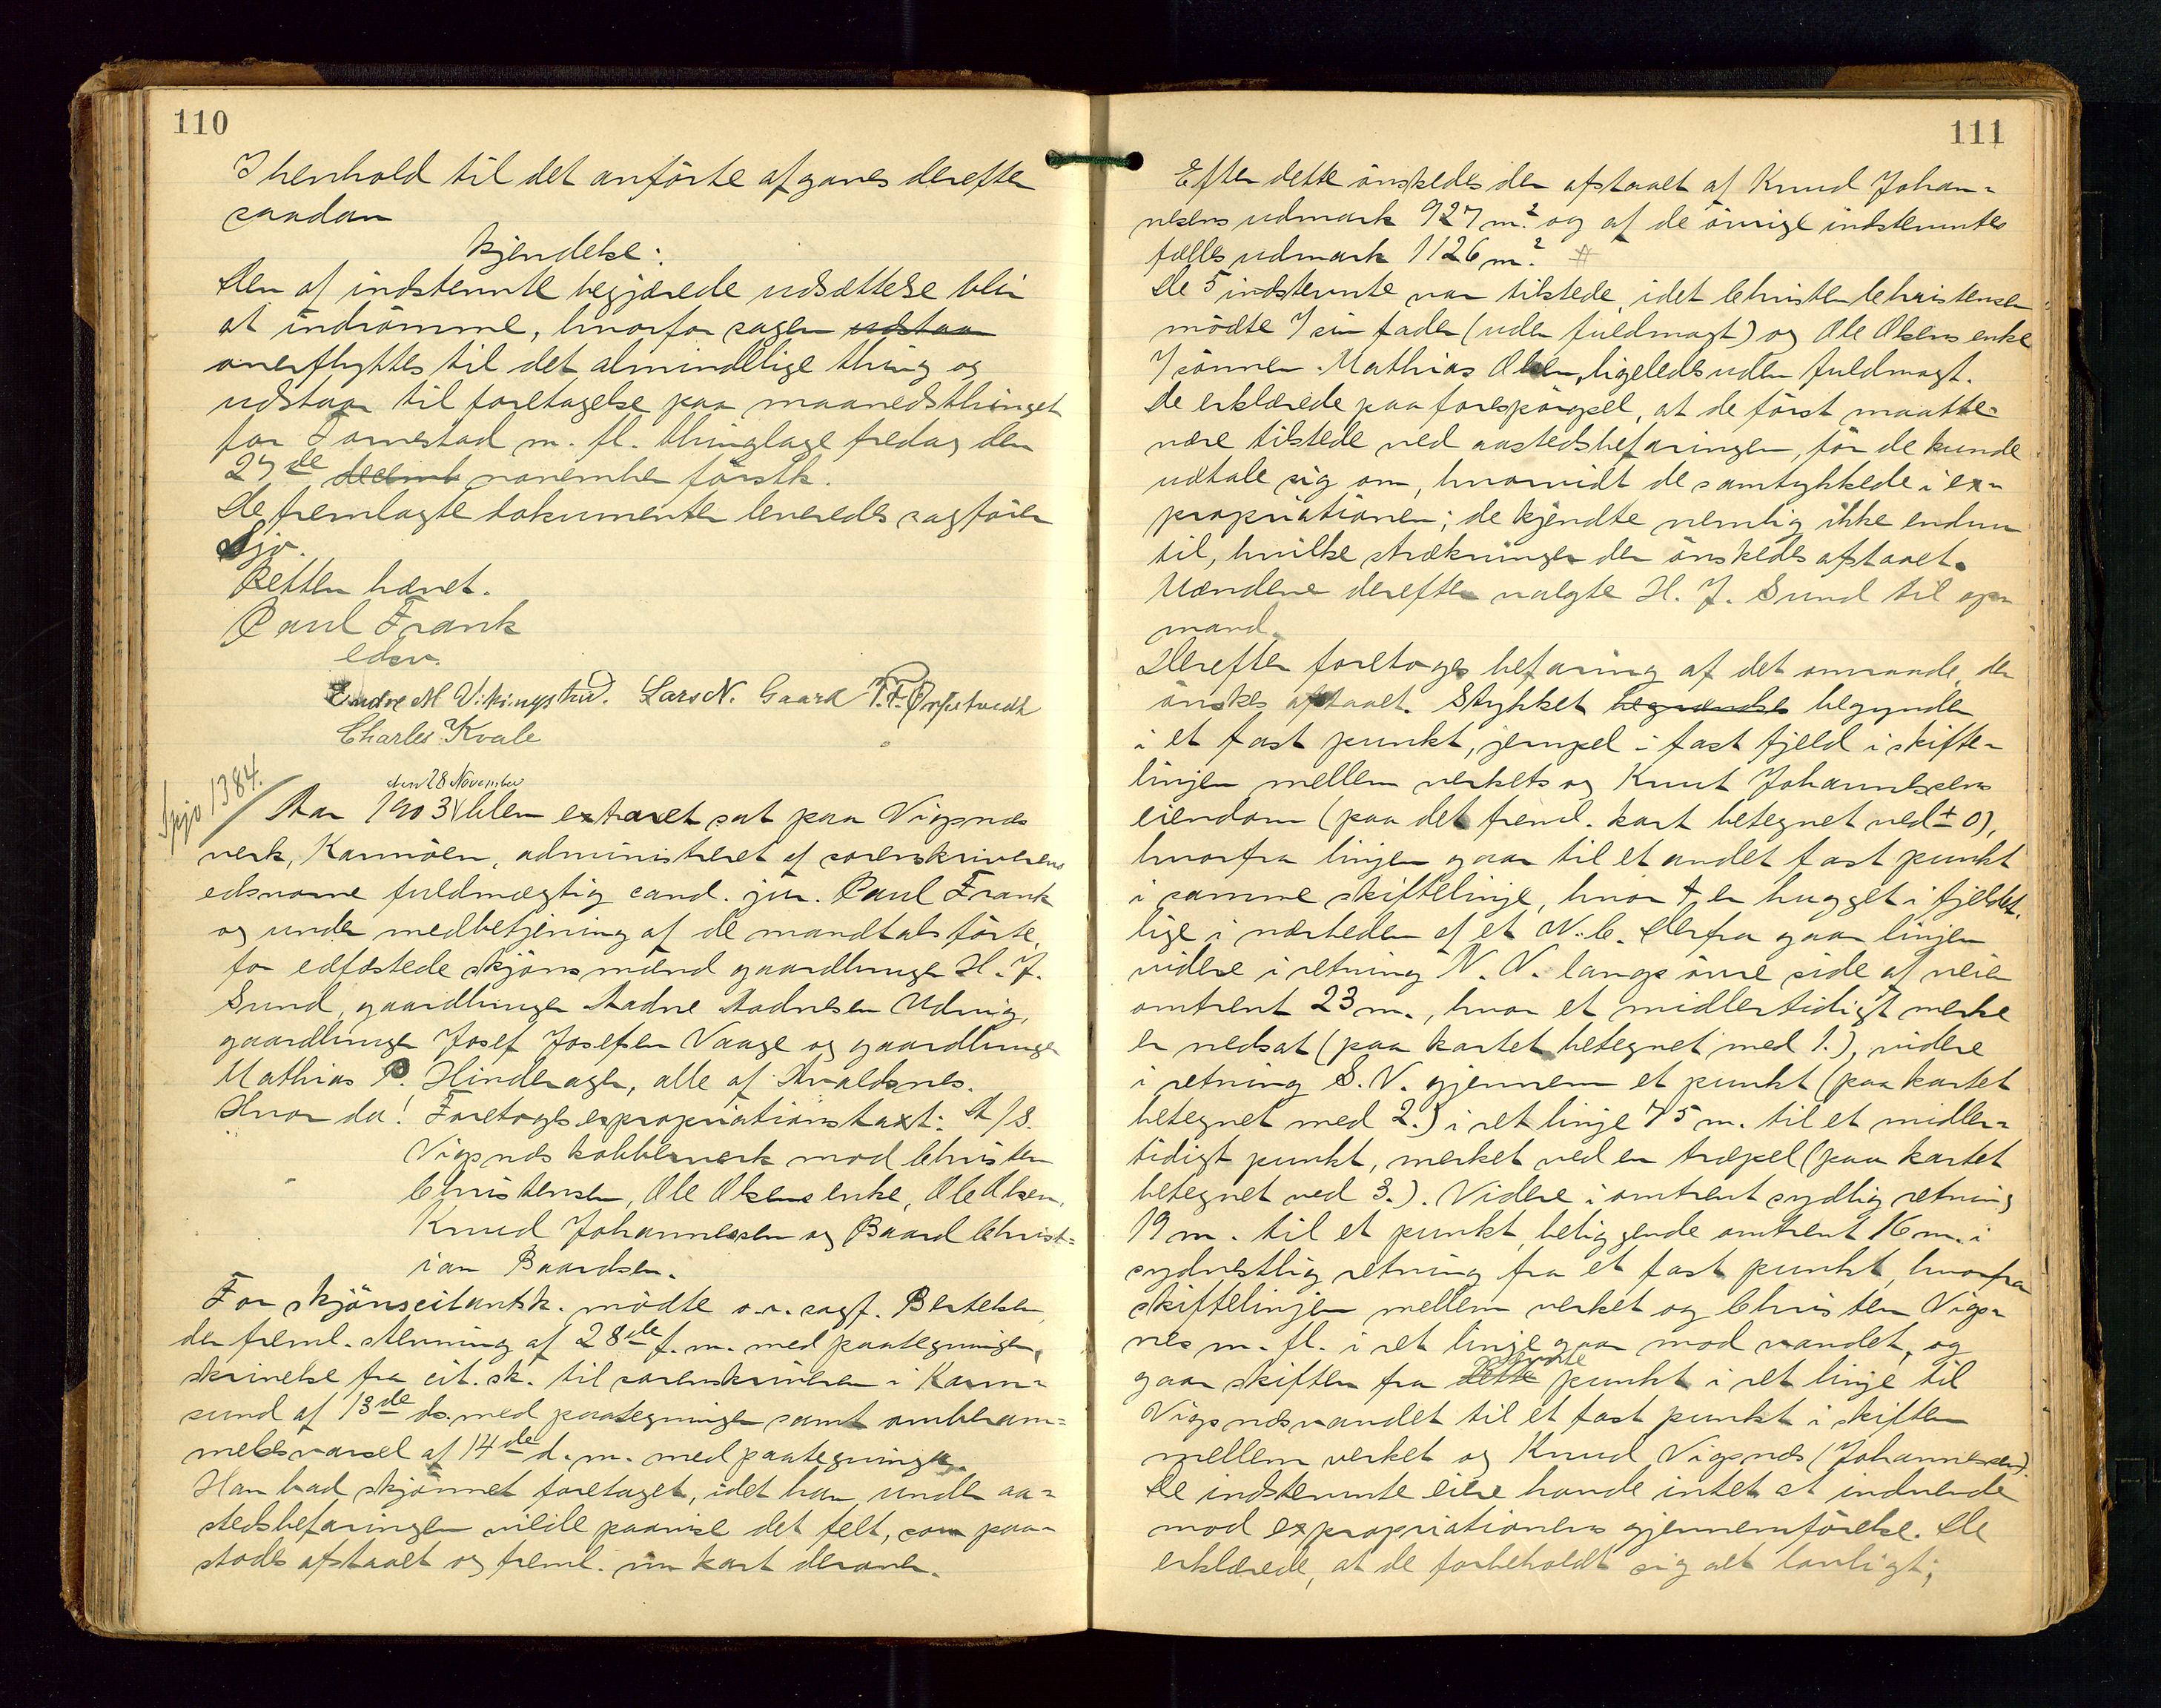 110
I henhold til det anförte afgaves derefter
saadan
kjendelse:
Den af indstevnte begjærede udsættelse blir
at indrömme, hvorfor sagen udstaar
overflyttes til det almindelige thing og
udstaar til foretagelse paa maanedsthinget
for Tornestad m. fl. thinglage fredag den
27de decemb november förstk.
De fremlagte dokumenter leveredes sagförer
Sjo.
Retten hævet.
Paul Frank
edsv.
Endre M Vikingstad. Lars N. Gaard T.T.
Charles Kvale
Spjo 1384.
den 28 November
Aar 1903 blev extraret sat paa Vigsnæs
verk, Karmöen, administreret af sorenskriverens
edsvorne fuldmægtig cand. jur. Paul Frank
og under medbetjening af de mandtalsförte,
for edfæstede skjönsmænd gaardbruger H. J.
Sund, gaardbruger Aadne Aadnesen Udvig,
gaardbruger Josef Josefsen Vaage og gaardbruger
Mathias P. Hinderager, alle af Avaldsnes.
Hvor da! Foretoges expropriationstaxt: A/S.
Vigsnæs kobberverk mod Christen
Christensen, Ole Olsens enke, Ole Olsen,
Knud Johannessen og Baard Christ=
ian Baardsen.
For skjönscitantsk. mödte o.r.sagf. Bertelsen,
der freml. stevning af 28de f.m. med paategninger,
skrivelse fra cit.sk. til sorenskriveren i Karm=
sund af 13de ds. med paategninger samt omberam=
melsesvarsel af 14de d.m. med paategninger.
Han bad skjönnet foretaget, idet han under aa=
stedsbefaringen vilde paavise det felt, som paa=
stodes afstaaet og freml. nu kart derover.
111
Efter dette önskedes der afstaaet af Knud Johan=
nesens udmark 927 m.2 og af de övrige indstevntes
fælles udmark 1126 m.2 #
De 5 indstevnte var tilstede, idet Christen Christensen
mödte v/ sin fader (uden fuldmagt) og Ole Olsens enke
v/ sönnen Mathias Olsen, ligeledes uden fuldmagt.
De erklærede paa forespörgsel, at de först maatte
være tilstede ved aastedsbefaringen, för de kunde
udtale sig om, hvorvidt de samtykkede i ex=
propriationen; de kjendte nemlig ikke endnu
til, hvilke strækninger der önskedes afstaaet.
Mændene derefter valgte H. J. Sund til op=
mand.
Derefter foretoges befaring af det omraade, der
önskes afstaaet. Stykket begrændses begynder
i et fast punkt, jernpel i fast fjeld i skifte=
linjen mellem verkets og Knut Johannessens
eiendom (paa det freml. kart betegnet ved ± 0),
hvorfra linjen gaar til et andet fast punkt
i samme skiftelinje, hvor † er hugget i fjeldet,
lige i nærheden af et W.C. Derfra gaar linjen
videre i retning N.V. langs övre side af veien
omtrent 23 m., hvor et midlertidigt merke
er nedsat (paa kartet betegnet med 1.), videre
i retning S.V. gjennem et punkt (paa kartet
betegnet med 2.) i ret linje 75 m. til et midler=
tidigt punkt, merket ved en træpel (paa kartet
betegnet ved 3.). Videre i omtrent sydlig retning
19 m. til et punkt, beliggende omtrent 16 m. i
sydvestlig retning fra et fast punkt, hvorfra
skiftelinjen mellem verket og Christen Vigs=
nes m. fl. i ret linje gaar mod vandet, og
gaar skiften fra dette nævnte punkt i ret linje til
Vigsnesvandet til et fast punkt i skiften
mellem verket og Knud Vigsnæs (Johannessen).
De indstevnte eiere havde intet at indvende
mod expropriationens gjennemförelse. De
erklærede, at de forbeholdt sig alt lovligt;